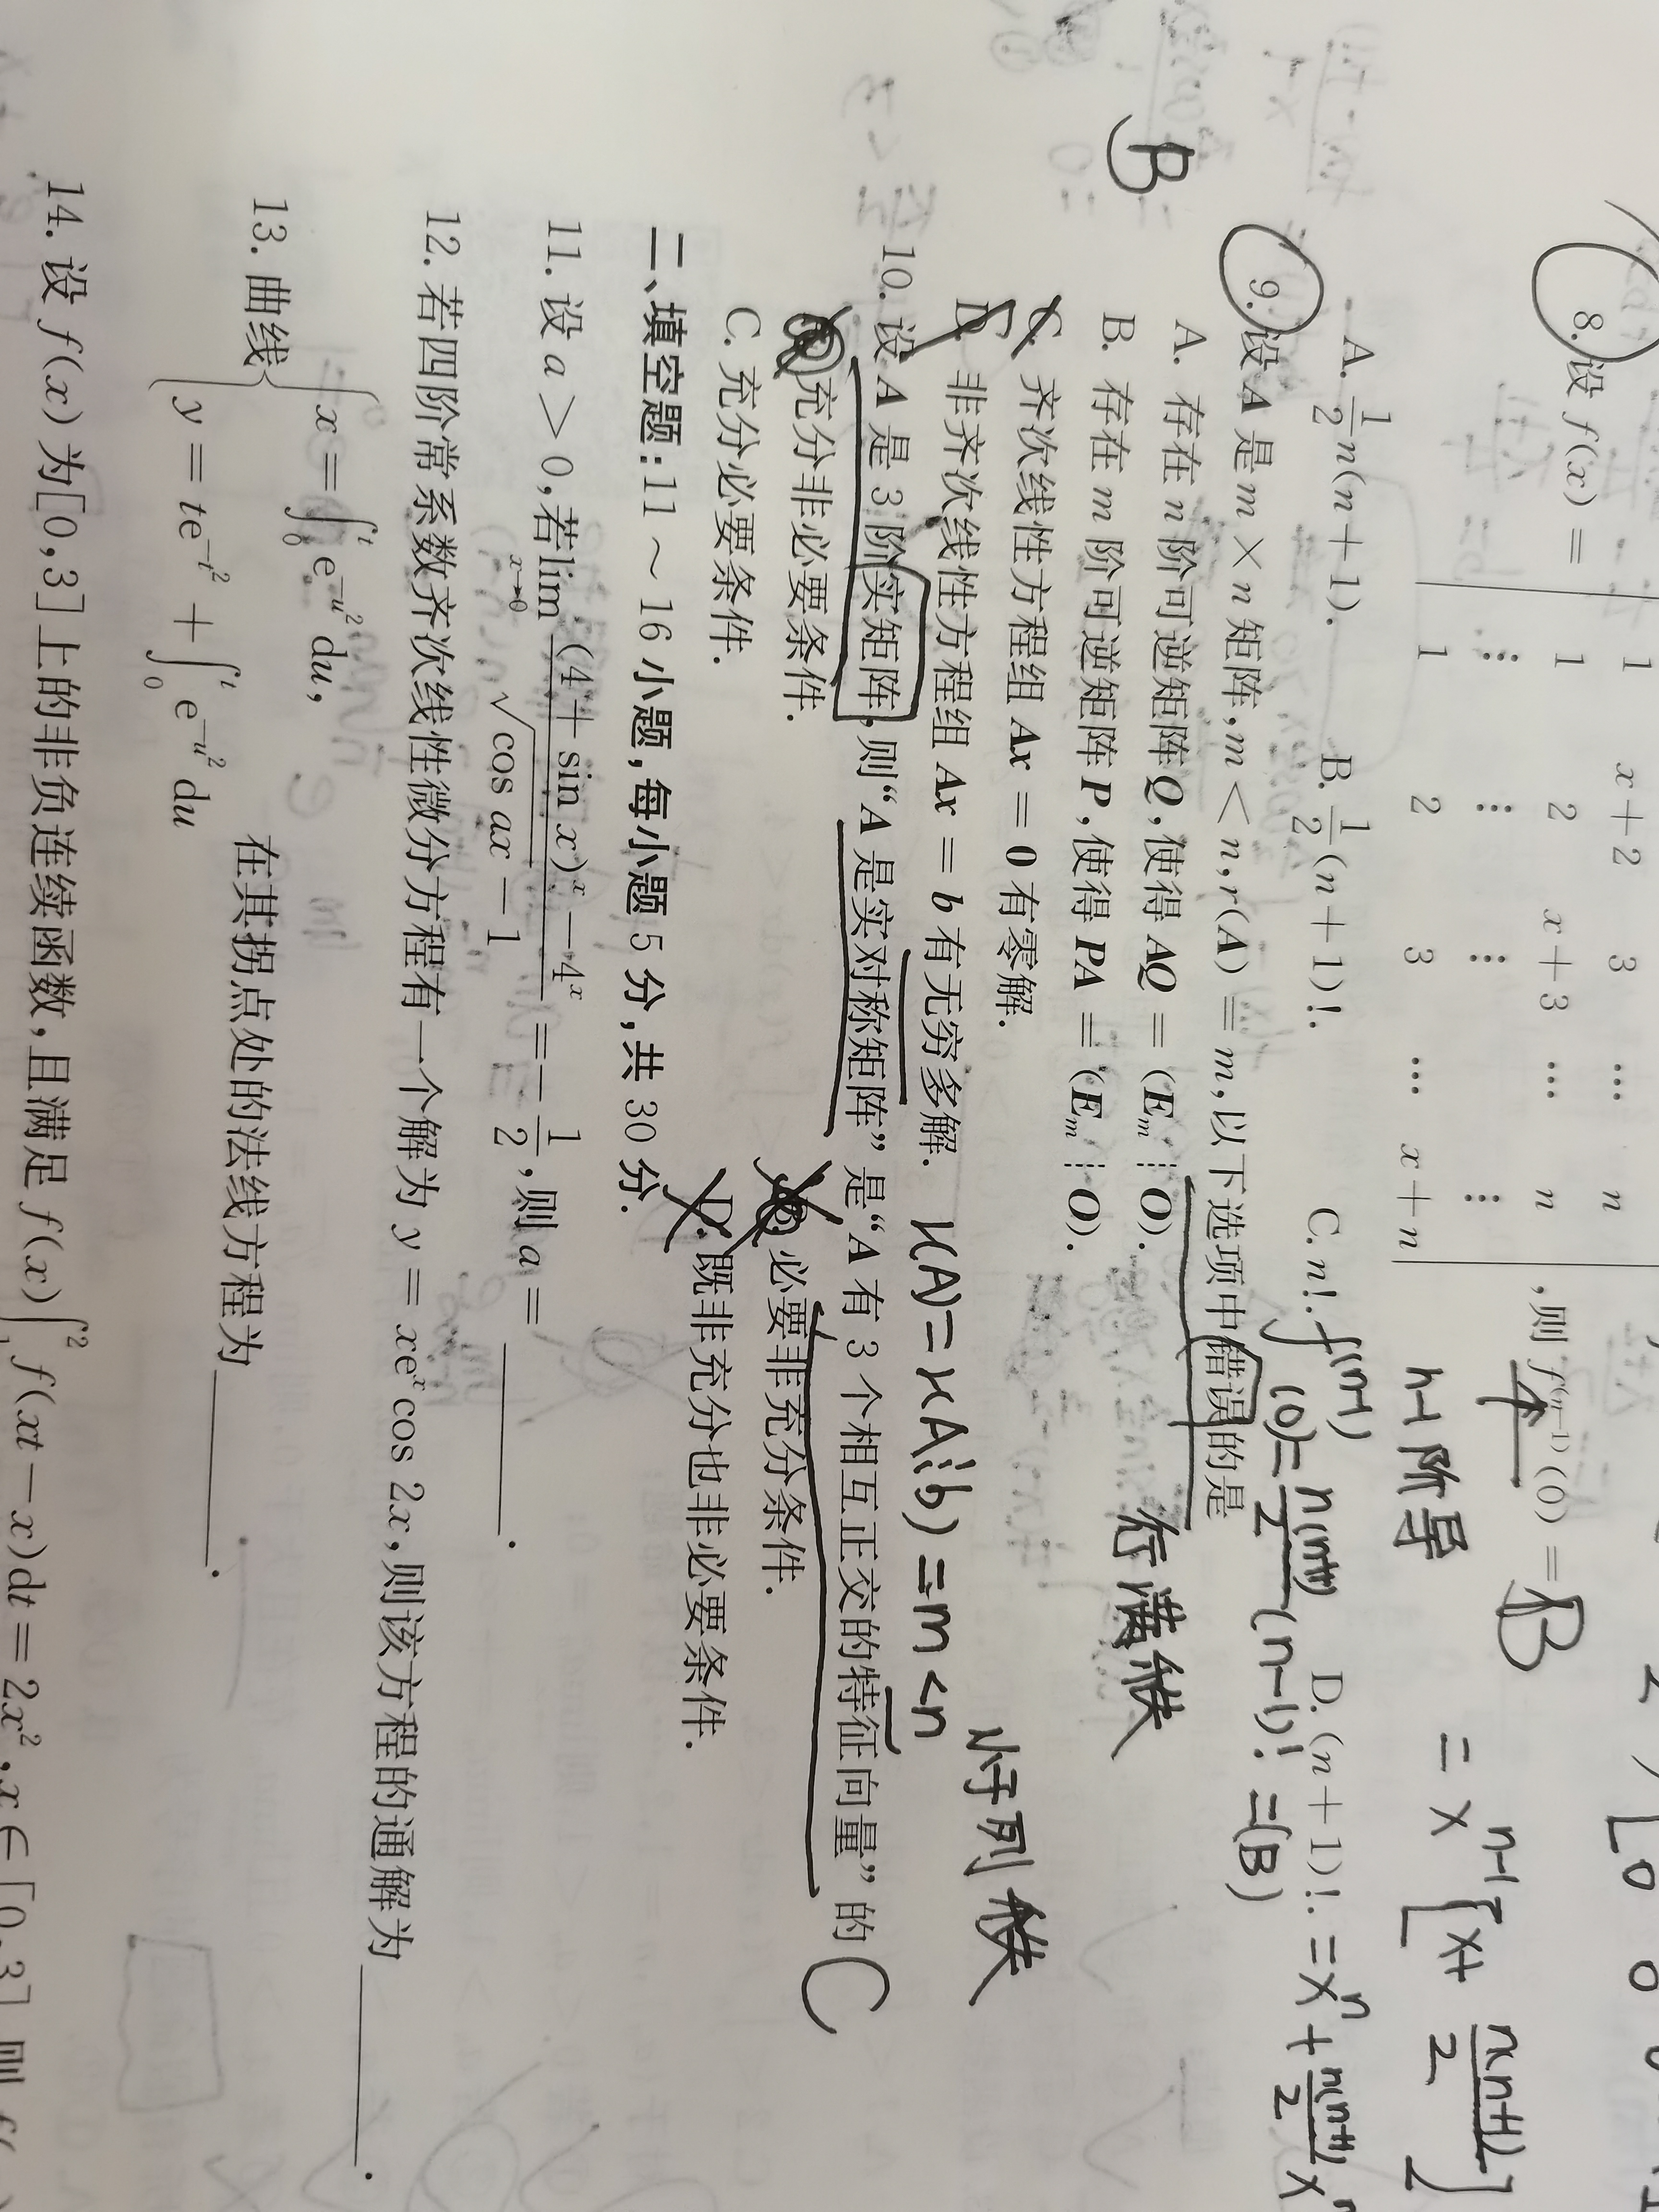 1 x+2 3 ⋯ n
8. 设 f(x) = 1 2 x+3 ⋯ n ,则 f⁽ⁿ⁻¹⁾(0) = B
⋮ ⋮ ⋮ ⋮
1 2 3 ⋯ x+n
n-1 阶导
= x^{n-1} [x+ n(n+1)/2]
A. \frac{1}{2}n(n+1). B. \frac{1}{2}(n+1)!. C. n!. D. (n+1)!.
f^{(n-1)}(0) = \frac{n(n+1)}{2}(n-1)! =(B)
= x^n + \frac{n(n+1)}{2} x
9. 设 A 是 m × n 矩阵, m < n, r(A) = m, 以下选项中错误的是
B
行满秩
A. 存在 n 阶可逆矩阵 Q, 使得 AQ = (E_m ⋮ O).
B. 存在 m 阶可逆矩阵 P, 使得 PA = (E_m ⋮ O).
C. 齐次线性方程组 Ax = 0 有零解.
小于列秩
D. 非齐次线性方程组 Ax = b 有无穷多解. r(A)=r(A⋮b)=m<n
10. 设 A 是 3 阶实矩阵, 则“A 是实对称矩阵”是“A 有 3 个相互正交的特征向量”的 C
充分非必要条件. B. 必要非充分条件.
C. 充分必要条件. D. 既非充分也非必要条件.
二、填空题:11 ~ 16 小题,每小题 5 分,共 30 分.
11. 设 a > 0, 若 \lim_{x→0} \frac{(4+\sin x)^x - 4^x}{\sqrt{\cos ax} - 1} = -\frac{1}{2}, 则 a = ______.
12. 若四阶常系数齐次线性微分方程有一个解为 y = xe^x cos 2x, 则该方程的通解为 ______.
13. 曲线 { x = ∫_0^t e^{-u^2} du,
y = te^{-t^2} + ∫_0^t e^{-u^2} du 在其拐点处的法线方程为 ______.
14. 设 f(x) 为[0,3]上的非负连续函数, 且满足 f(x)∫_1^2 f(xt-x)dt = 2x^2, x∈[0,3]